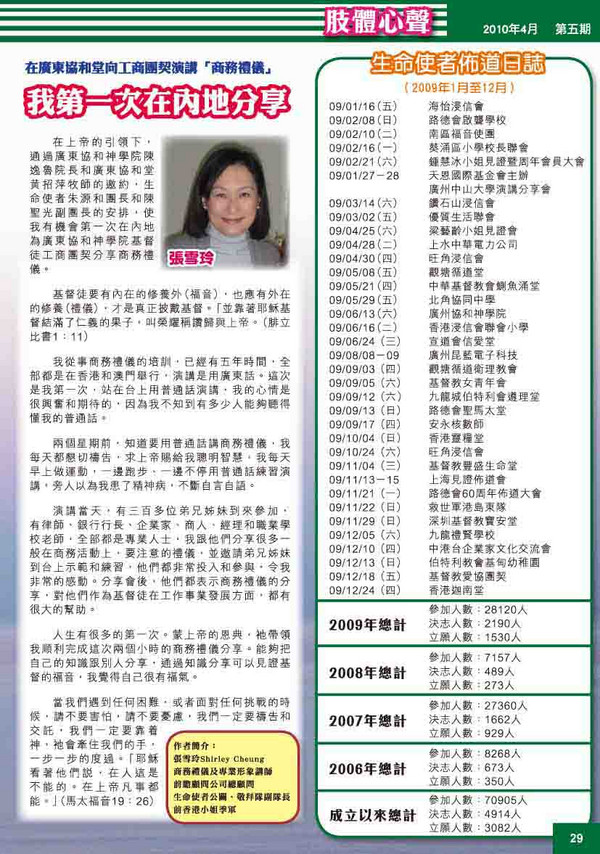 肢體心聲
2010年4月　第五期
在廣東協和堂向工商團契演講「商務禮儀」
我第一次在內地分享
在上帝的引領下，
通過廣東協和神學院陳
逸魯院長和廣東協和堂
黃招萍牧師的邀約，生
命使者朱源和團長和陳
聖光副團長的安排，使
我有機會第一次在內地
為廣東協和神學院基督
徒工商團契分享商務禮
儀。
張雪玲
基督徒要有內在的修養外(福音)，也應有外在
的修養(禮儀)，才是真正披戴基督。「並靠著耶穌基
督結滿了仁義的果子，叫榮耀稱讚歸與上帝。(腓立
比書1：11)
我從事商務禮儀的培訓，已經有五年時間，全
部都是在香港和澳門舉行，演講是用廣東話。這次
是我第一次，站在台上用普通話演講，我的心情是
很興奮和期待的，因為我不知到有多少人能夠聽得
懂我的普通話。
兩個星期前，知道要用普通話講商務禮儀，我
每天都懇切禱告，求上帝賜給我聰明智慧，我每天
早上做運動，一邊跑步、一邊不停用普通話練習演
講，旁人以為我患了精神病，不斷自言自語。
演講當天，有三百多位弟兄姊妹到來參加，
有律師、銀行行長、企業家、商人、經理和職業學
校老師，全部都是專業人士，我跟他們分享很多一
般在商務活動上，要注意的禮儀，並邀請弟兄姊妹
到台上示範和練習，他們都非常投入和參與，令我
非常的感動。分享會後，他們都表示商務禮儀的分
享，對他們作為基督徒在工作事業發展方面，都有
很大的幫助。
人生有很多的第一次。蒙上帝的恩典，祂帶領
我順利完成這次兩個小時的商務禮儀分享。能夠把
自己的知識跟別人分享，通過知識分享可以見證基
督的福音，我覺得自己很有福氣。
當我們遇到任何困難，或者面對任何挑戰的時
候，請不要害怕，請不要憂慮，我們一定要禱告和
交託，我們一定要靠着
神，祂會牽住我們的手，
一步一步的度過。「耶穌
看著他們說，在人這是
不能的。在上帝凡事都
能。」(馬太福音19：26)
作者簡介：
張雪玲Shirley Cheung
商務禮儀及專業形象講師
前瞻顧問公司總顧問
生命使者公關、敬拜隊副隊長
前香港小姐季軍
生命使者佈道日誌
(2009年1月至12月)
09/01/16(五)　海怡浸信會
09/02/08(日)　路德會啟聾學校
09/02/10(二)　南區福音使團
09/02/16(一)　葵涌區小學校長聯會
09/02/21(六)　鍾慧冰小姐見證暨周年會員大會
09/01/27－28　天恩國際基金會主辦
廣州中山大學演講分享會
09/03/14(六)　鑽石山浸信會
09/03/02(五)　優質生活聯會
09/04/25(六)　梁藝齡小姐見證會
09/04/28(二)　上水中華電力公司
09/04/30(四)　旺角浸信會
09/05/08(五)　觀塘循道堂
09/05/21(四)　中華基督教會鰂魚涌堂
09/05/29(五)　北角協同中學
09/06/13(六)　廣州協和神學院
09/06/16(二)　香港浸信會聯會小學
09/06/24(三)　宣道會信愛堂
09/08/08－09　廣州昆藍電子科技
09/09/03(四)　觀塘循道衛理教會
09/09/05(六)　基督教女青年會
09/09/12(六)　九龍城伯特利會遵理堂
09/09/13(日)　路德會聖馬太堂
09/09/17(四)　安永核數師
09/10/04(日)　香港靈糧堂
09/10/24(六)　旺角浸信會
09/11/04(三)　基督教豐盛生命堂
09/11/13－15　上海見證佈道會
09/11/21(一)　路德會60周年佈道大會
09/11/22(日)　救世軍港島東隊
09/11/29(日)　深圳基督教寶安堂
09/12/05(六)　九龍禮賢學校
09/12/10(四)　中港台企業家文化交流會
09/12/13(日)　伯特利教會基甸幼稚園
09/12/18(五)　基督教愛協團契
09/12/24(四)　香港迦南堂
2009年總計
參加人數：28120人
決志人數：2190人
立願人數：1530人
2008年總計
參加人數：7157人
決志人數：489人
立願人數：273人
2007年總計
參加人數：27360人
決志人數：1662人
立願人數：929人
2006年總計
參加人數：8268人
決志人數：673人
立願人數：350人
成立以來總計
參加人數：70905人
決志人數：4914人
立願人數：3082人
29